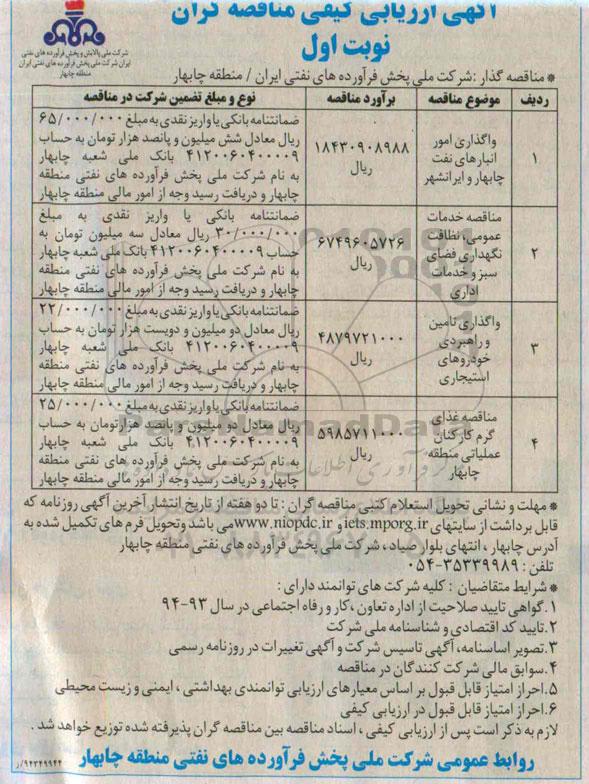 آگهی ارزیابی کیفی مناقصه گران
نوبت اول
شرکت ملی پالایش و پخش فرآورده های نفتی
ایران شرکت ملی پخش فرآورده های نفتی ایران
منطقه چابهار
* مناقصه گذار : شرکت ملی پخش فرآورده های نفتی ایران / منطقه چابهار
ردیف موضوع مناقصه برآورد مناقصه نوع و مبلغ تضمین شرکت در مناقصه
۱
واگذاری امور
انبارهای نفت
چابهار و ایرانشهر
۱۸۴۳۰۹۰۸۹۸۸
ریال
ضمانتنامه بانکی یا واریز نقدی به مبلغ ۶۵/۰۰۰/۰۰۰
ریال معادل شش میلیون و پانصد هزار تومان به حساب
۴۱۲۰۰۶۰۴۰۰۰۰۹ بانک ملی شعبه چابهار
به نام شرکت ملی پخش فرآورده های نفتی منطقه
چابهار و دریافت رسید وجه از امور مالی منطقه چابهار
۲
مناقصه خدمات
عمومی، نظافت
نگهداری فضای
سبز و خدمات
اداری
۶۷۴۹۶۰۵۷۲۶
ریال
ضمانتنامه بانکی یا واریز نقدی به مبلغ
۳۰/۰۰۰/۰۰۰ ریال معادل سه میلیون تومان به
حساب ۴۱۲۰۰۶۰۴۰۰۰۰۹ بانک ملی شعبه چابهار
به نام شرکت ملی پخش فرآورده های نفتی منطقه
چابهار و دریافت رسید وجه از امور مالی منطقه چابهار
۳
واگذاری تامین
و راهبردی
خودروهای
استیجاری
۴۸۷۹۷۲۱۰۰۰
ریال
ضمانتنامه بانکی یا واریز نقدی به مبلغ ۲۲/۰۰۰/۰۰۰
ریال معادل دو میلیون و دویست هزار تومان به حساب
۴۱۲۰۰۶۰۴۰۰۰۰۹ بانک ملی شعبه چابهار
به نام شرکت ملی پخش فرآورده های نفتی منطقه
چابهار و دریافت رسید وجه از امور مالی منطقه چابهار
۴
مناقصه غذای
گرم کارکنان
عملیاتی منطقه
چابهار
۵۹۸۵۷۱۱۰۰۰
ریال
ضمانتنامه بانکی یا واریز نقدی به مبلغ ۲۵/۰۰۰/۰۰۰
ریال معادل دو میلیون و پانصد هزارتومان به حساب
۴۱۲۰۰۶۰۴۰۰۰۰۹ بانک ملی شعبه چابهار
به نام شرکت ملی پخش فرآورده های نفتی منطقه
چابهار و دریافت رسید وجه از امور مالی منطقه چابهار
* مهلت و نشانی تحویل استعلام کتبی مناقصه گران : تا دو هفته از تاریخ انتشار آخرین آگهی روزنامه که
قابل برداشت از سایتهای iets.mporg.ir و www.niopdc.ir می باشد وتحویل فرم های تکمیل شده به
آدرس چابهار ، انتهای بلوار صیاد ، شرکت ملی پخش فرآورده های نفتی منطقه چابهار
تلفن : ۳۵۳۳۹۹۸۹-۰۵۴
* شرایط متقاضیان : کلیه شرکت های توانمند دارای :
۱.گواهی تایید صلاحیت از اداره تعاون ،کار و رفاه اجتماعی در سال ۹۳-۹۴
۲.تایید کد اقتصادی و شناسنامه ملی شرکت
۳.تصویر اساسنامه، آگهی تاسیس شرکت و آگهی تغییرات در روزنامه رسمی
۴.سوابق مالی شرکت کنندگان در مناقصه
۵.احراز امتیاز قابل قبول بر اساس معیارهای ارزیابی توانمندی بهداشتی ، ایمنی و زیست محیطی
۶.احراز امتیاز قابل قبول در ارزیابی کیفی
لازم به ذکر است پس از ارزیابی کیفی ، اسناد مناقصه بین مناقصه گران پذیرفته شده توزیع خواهد شد .
روابط عمومی شرکت ملی پخش فرآورده های نفتی منطقه چابهار
۹۴۳۴۹۹۴۴/ر